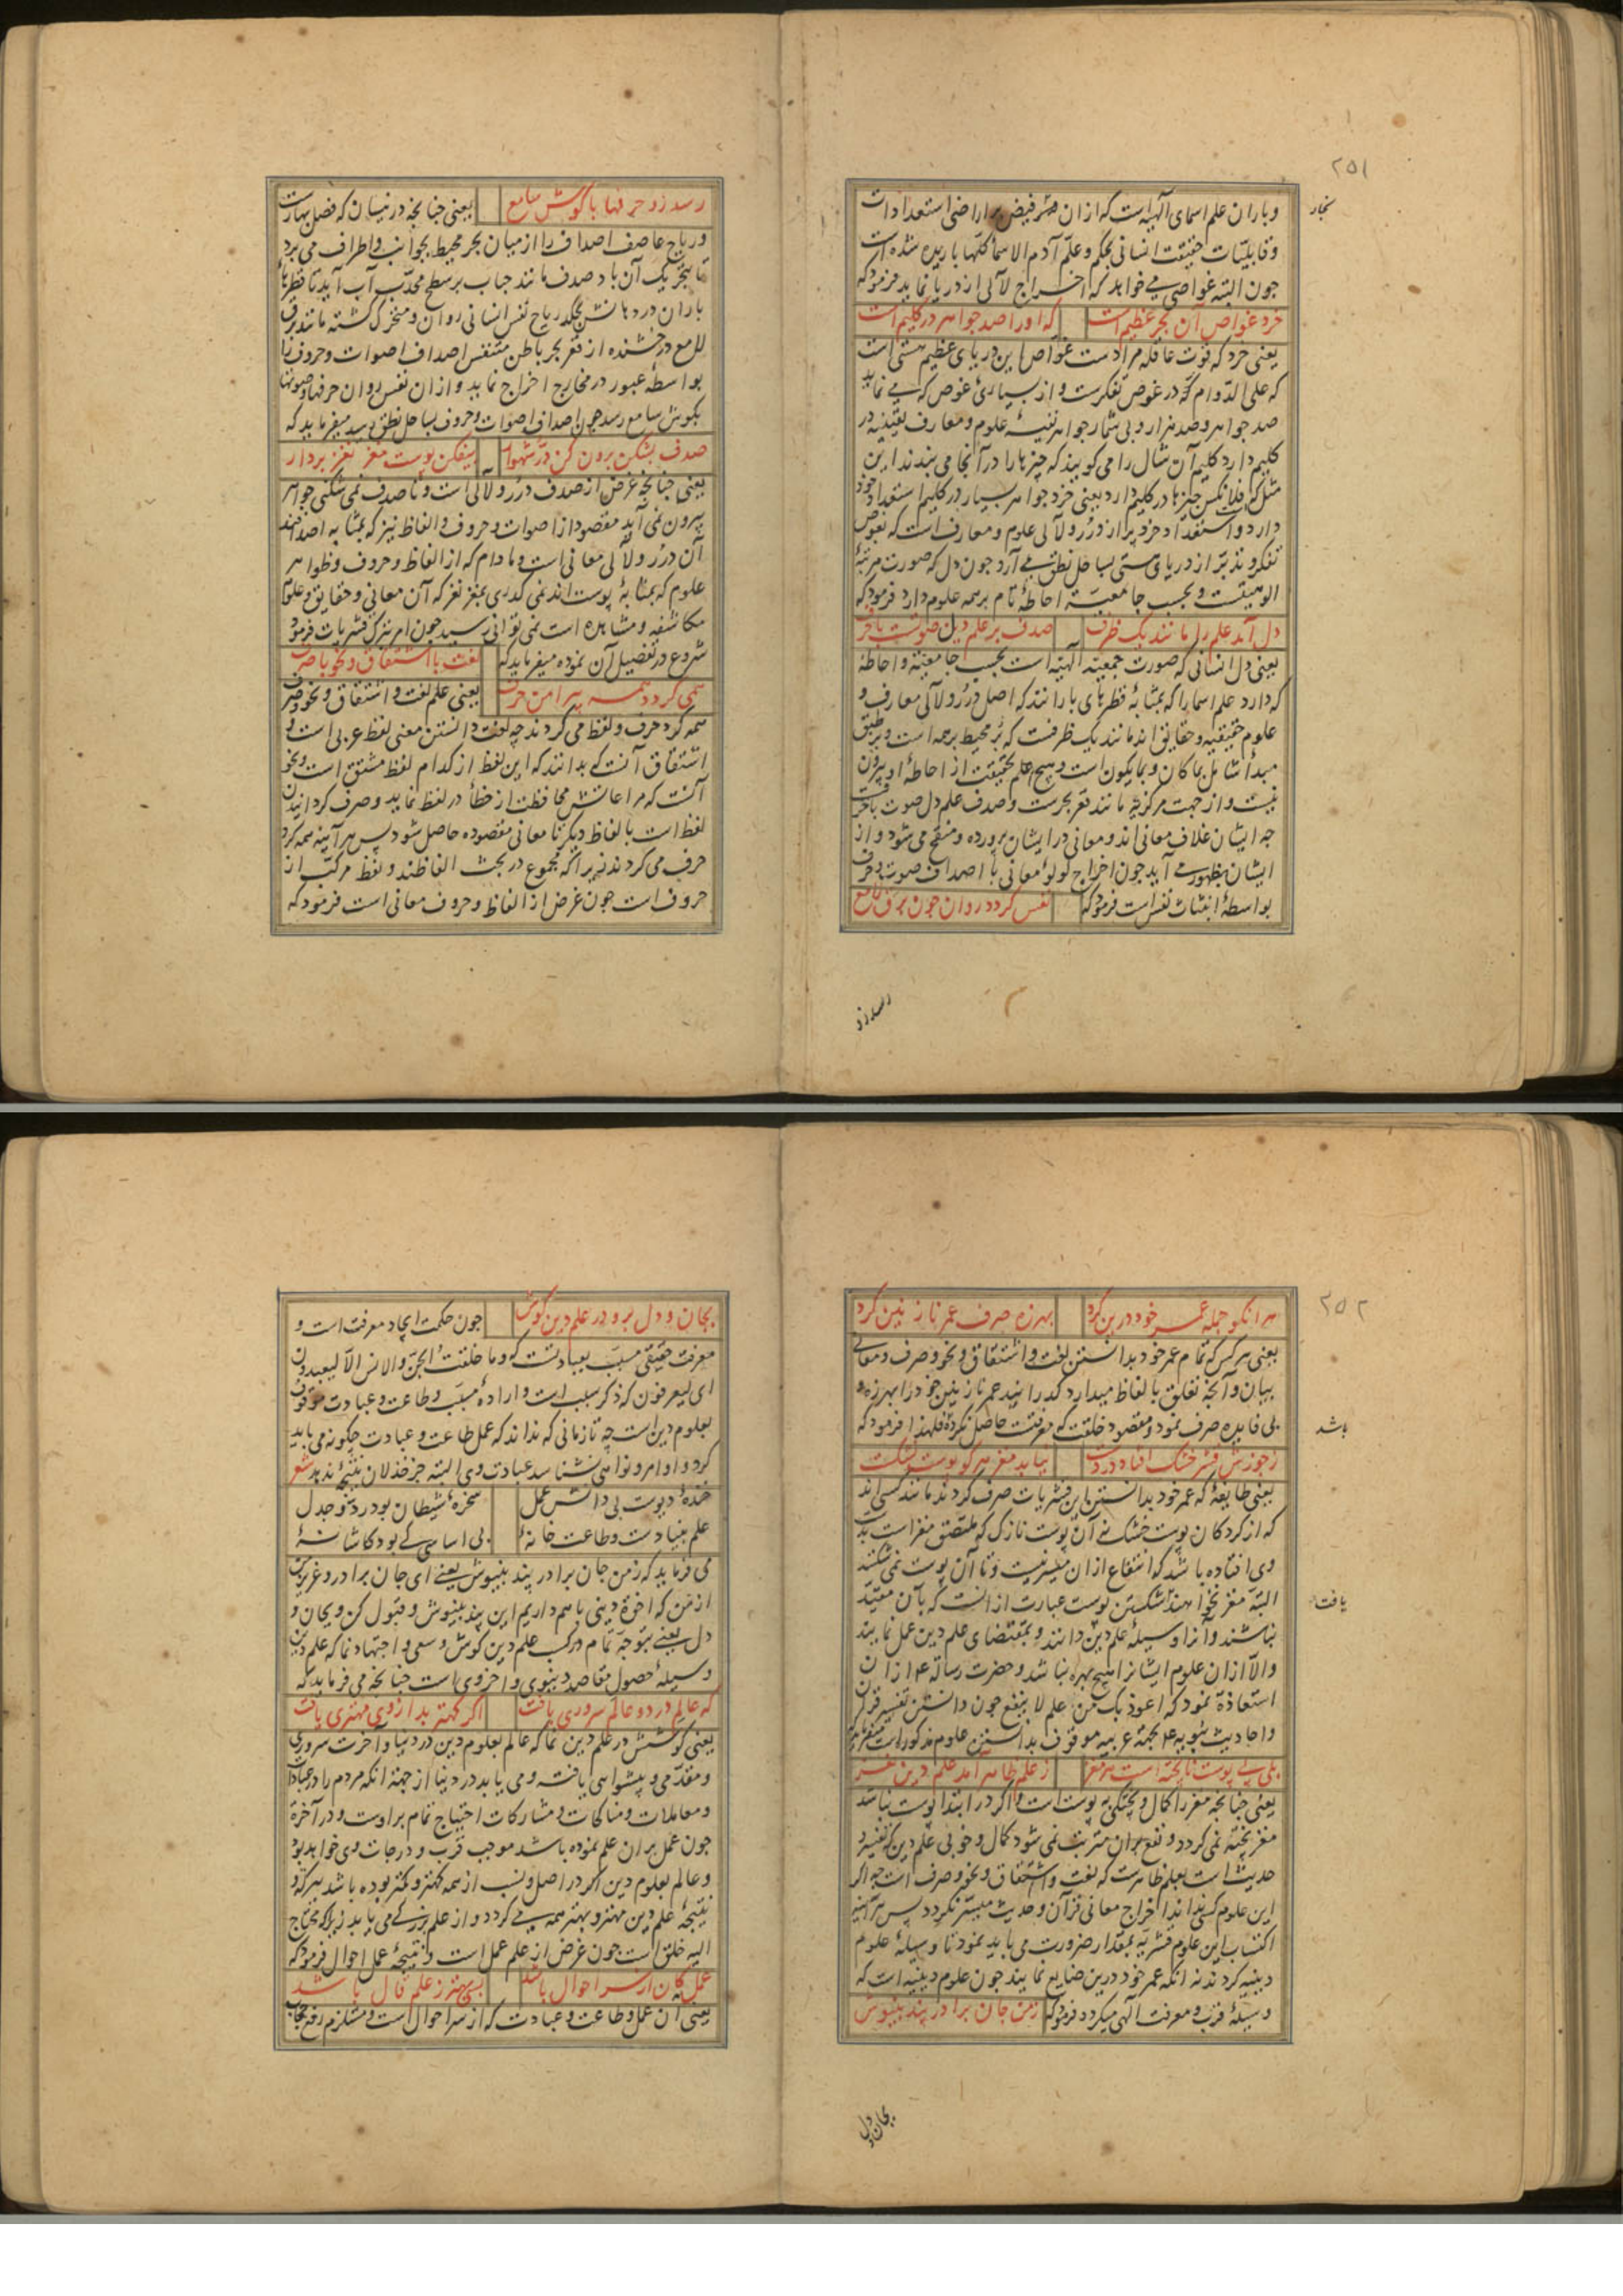 ۲۵۱
بخار
و باران علم اسمای الهیه است که ازان فیض بر اراضی استعدادات
و قابلیّات حقیقت انسانی بحکم و علّم آدم الاسماء کلّها باریده شده است
جون البته غواصی می خواهد که اخراج لآلی از دریا نماید فرمود که
خرد غواص آن بحر عظیم است که او را صد جواهر در کلیم است
یعنی خرد که قوت عاقله مراد است غواص این دریای عظیم هستی است
که علی الدّوام که در غوص تفکرست و از بسیارئ غوص که می نماید
صد جواهر و صد هزار و بی شمار جواهر نفیسهٔ علوم و معارف یقینیه در
کلیم دارد کلیم آن شال را می کویند که چیزها را در آنجا می بندند این
مثل که فلانکس چیزها در کلیم دارد یعنی خرد جواهر بسیار در کلیم استعداد خود
دارد و استعداد خرد پر از درر و لآلی علوم و معارف است که بغوص
تفکر و تدبّر از دریای هستی بساحل نطق می آرد جون دل که صورت مرتبهٔ
الوهیتست و بحسب جامعیت احاطهٔ تام بر همه علوم دارد فرمود که
دل آمد علم را مانند یک ظرف صدف بر علم دل صوتست با حرف
یعنی دل انسانی که صورت جمعیّت الهیّه است بحسب جامعیّت و احاطهٔ
که دارد علم اسما را که بمثابهٔ قطرهای بارانند که اصل درر و لآلی معارف و
علوم حقیقیه و حقایق اند مانند یک ظرفست که پر محیط بر همه است و بر طبق
مبدأ شامل بما کان و بما یکون است و هیچ علم بحقیقت از احاطهٔ او بیرون
نیست و از جهت مرکزیة مانند قعر بحرست و صدف علم دل صوت با حرفست
جه ایشان غلاف معانی اند و معانی در ایشان پرورده و منقح می شود و از
ایشان بظهور می آید جون اخراج لولوٴ معانی با اصداف صوت و حرف
بواسطهٔ انبثاث نفس است فرمود که نفس کردد روان جون برق لامع
رسد زو
رسد زو حرفها با کوش سامع یعنی جنانجه در نیسان که فصل بهارست
و ریاح عاصف اصداف را از میان بحر محیط بجوانب و اطراف می برد
تا بتحریک آن باد صدف مانند حباب بر سطح محدّب آب آید تا قطرهاء
باران در دهانش بچکد ریاح نفس انسانی روان و متحرک کشته مانند برق
لامع درخشنده از قعر بحر باطن متنفس اصداف اصوات و حروف را
بواسطهٔ عبور در مخارج اخراج نماید و ازان نفس روان حرفها و صوتها
بکوش سامع رسد جون اصداف اصوات و حروف بساحل نطق رسید میفرماید که
صدف بشکن برون کن درّ شهوار بیفکن پوست مغز نغز بردار
یعنی جنانجه غرض از صدف درر و لآلی است و تا صدف نمی شکنی جواهر
بیرون نمی آید مقصود از اصوات و حروف و الفاظ نیز که بمثابه اصدافند
آن درر و لآلی معانی است و مادام که از الفاظ و حروف و ظواهر
علوم که بمثابهٔ پوست اند نمی کذری بمغز نغز که آن معانی و حقایق و علوم
مکاشفه و مشاهده است نمی توانی رسید جون امر بترک قشریات فرمود
شروع در تفصیل آن نموده میفرماید که لغت با اشتقاق و نحو با صرف
همی کردد همه پیرامن حرف یعنی علم لغت و اشتقاق و نحو و صرف
همه کرد حرف و لفظ می کردند چه لغت دانستن معنی لفظ عربی است و
اشتقاق آنست که بدانند که این لفظ از کدام لفظ مشتق است و نحو
آنست که مراعاتش محافظت از خطأ در لفظ نماید و صرف کردانیدن
لفظ است بالفاظ دیکر تا معانی مقصوده حاصل شود پس هر آینه همه کرد
حرف می کردند زیرا که مجموع در بحث الفاظند و لفظ مرکّب از
حروف است جون غرض از الفاظ و حروف معانی است فرمود که
۲۵۲
هر انکو جمله عمر خود درین کرد بهرزه صرف عمر نازنین کرد
یعنی هر کس که تمام عمر خود بدانستن لغت و اشتقاق و نحو و صرف و معانی
بیان و آنجه تعلق بالفاظ میدارد کذرانید عمر نازنین خود را بهرزه و
بی فایده صرف نمود و مقصود خلقت که معرفتست حاصل نکرده فلهذا فرمود که
باشد
ز جوزش قشر خشک افتاد در دست نیابد مغز هر کو پوست نشکست
یعنی طایفهٔ که عمر خود بدانستن این قشریات صرف کردند مانند کسی اند
که از کردکان پوست خشک بی آن پوست نازک که ملتصق مغز است بدست
وی افتاده باشد که انتفاع ازان میسر نیست و تا آن پوست نمی شکنند
البتّه مغز نخواهند شکستن پوست عبارت از آنست که بآن مقیّد
یافت
نباشند و آنرا وسیلهٔ علم دین دانند و بمقتضای علم دین عمل نمایند
و الّا ازان علوم ایشانرا هیچ بهره نباشد و حضرت رسالة ع م ازان
استعاذة نمود که اعوذ بک من علم لا ینفع جون دانستن تفسیر قرآن
و احادیث نبویه ع م بجهة عربیه موقوف بدانستن علوم مذکور است میفرماید که
بلی بی پوست ناپخته است هر مغز ز علم ظاهر آمد علم دین نغز
یعنی جنانجه مغز را کمال و پختکی به پوست است و اکر در ابتدا پوست نباشد
مغز پخته نمی کردد و نفع بران مترتب نمی شود کمال و خوبی علم دین که تفسیر و
حدیث است بعلم ظاهرست که لغت و اشتقاق و نحو و صرف است جه اکر
این علوم کسی نداند اخراج معانی قرآن و حدیث میسّر نکردد پس هر آینه
اکتساب این علوم قشریّه بمقدار ضرورت می باید نمود تا وسیلهٔ علوم
دینیه کردند نه آنکه عمر خود درین ضایع نمایند جون علوم دینیه است که
وسیلهٔ قرب و معرفت الهی میکردد فرمود که ز من جان برادر پند بنیوش
بجان و دل
بجان و دل برو در علم دین کوش جون حکمت ایجاد معرفت است و
معرفت حقیقی مسبّب بعبادتست که و ما خلقت الجنّ و الانس الّا لیعبدون
ای لیعرفون که ذکر سبب است و ارادهٔ مسبّب و طاعت و عبادت موقوف
بعلوم دین است چه تا زمانی که نداند که عمل طاعت و عبادت چکونه می باید
کرد و اوامر و نواهی نشناسد عبادت وی البته جز خذلان نتیجهٔ ندهد شعر
خندهٔ دیوست بی دانش عمل سخرهٔ شیطان بود رد و جدل
علم بنیادست و طاعت خانهٔ بی اساسی کی بود کاشانهٔ
می فرماید که ز من جان برادر پند بنیوش یعنی ای جان برادر و عزیز من
از من که اخوّة دینی با هم داریم این پند بنیوش و قبول کن و بجان و
دل یعنی بتوجه تمام در کسب علم دین کوش و سعی و اجتهاد نما که علم دین
وسیلهٔ حصول مقاصد دنیوی و اخروی است جنانجه می فرماید که
که عالم در دو عالم سروری یافت اکر کهتر بد از وی مهتری یافت
یعنی کوشش در علم دین نما که عالم بعلوم دین در دنیا و آخرت سروری
و مقدّمی و پیشوایی یافت و می یابد در دنیا از جهة آنکه مردم را در عبادات
و معاملات و مناکات و مشارکات احتیاج تمام براوست و در آخرة
جون عمل بران علم نموده باشد موجب قرب و درجات وی خواهد بود
و عالم بعلوم دین اکر در اصل و نسب از همه کهتر و کمتر بوده باشد ببرکة و
نتیجهٔ علم دین مهتر و بهتر همه می کردد و از علم بزرکی می یابد زیرا که محتاج
الیه خلق است جون غرض از علم عمل است و نتیجهٔ عمل احوال فرمود که
عمل کان از سر احوال باشد بسی بهتر ز علم قال باشد
یعنی آن عمل و طاعت و عبادت که از سر احوال است و مستلزم رفع حجاب